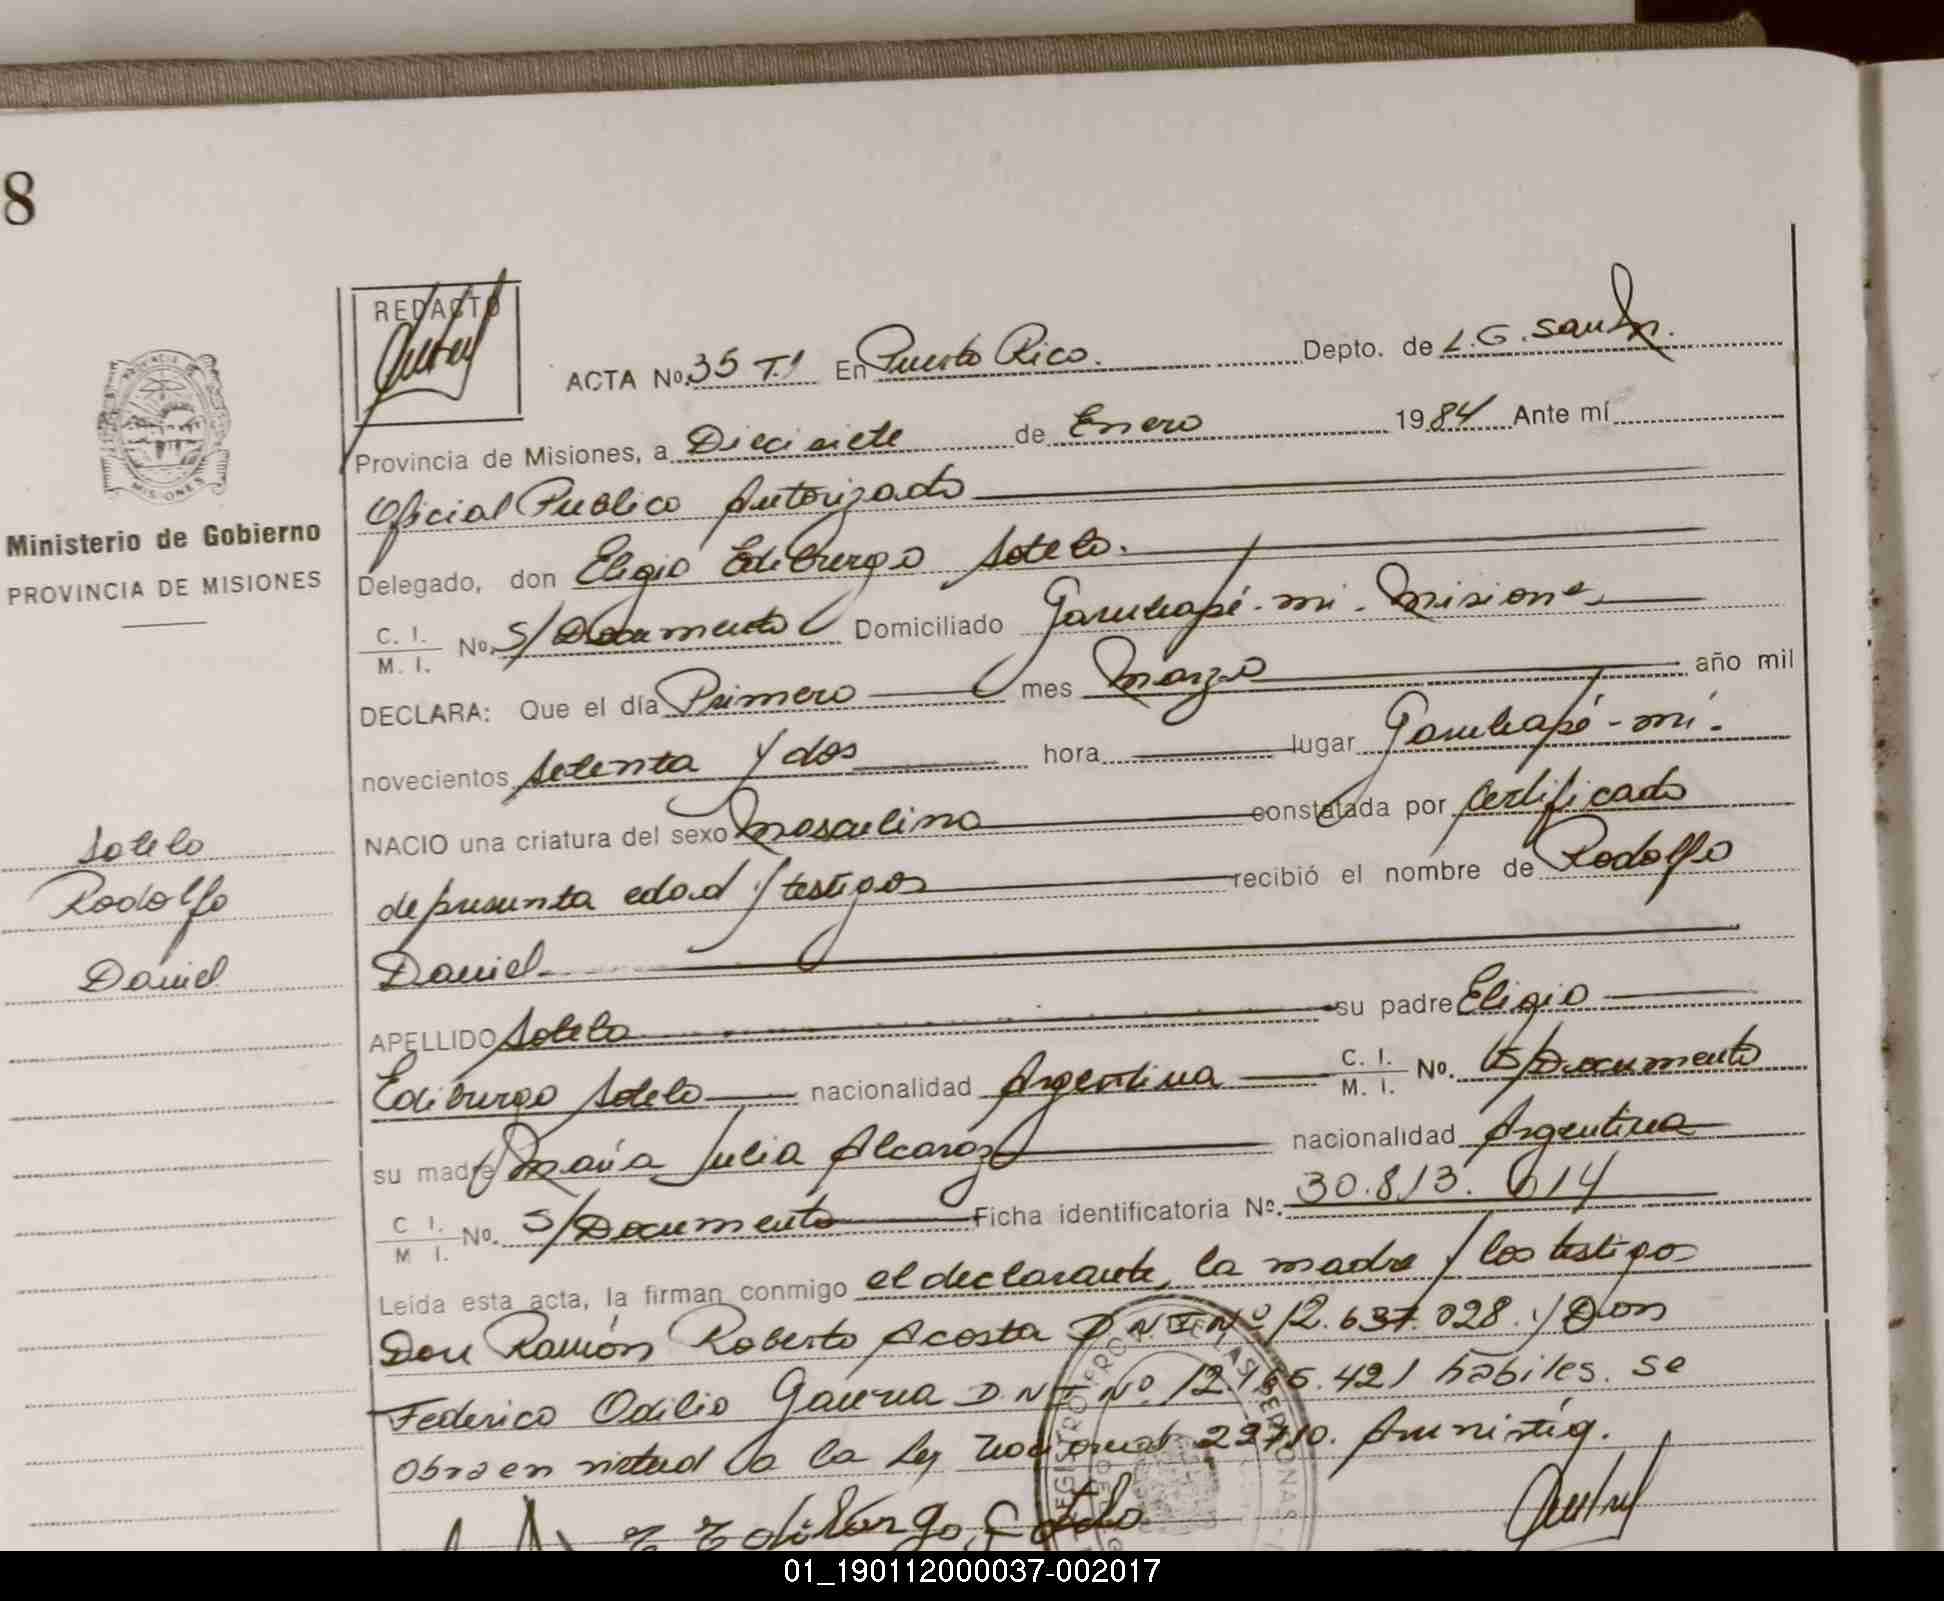 8
REDACTO
ACTA No. 35 T.1 En Puerto Rico. Depto. de L.G. San Mn.
Provincia de Misiones, a Diecisiete de Enero 1984 Ante mí
Oficial Publico Autorizado
Ministerio de Gobierno
PROVINCIA DE MISIONES
Delegado, don Eligio Ediburgo Sotelo.
C. I. / M. I. No. S/Documento Domiciliado Garuhapé-mi-Misiones
DECLARA: Que el día Primero mes Marzo año mil
novecientos setenta y dos hora lugar Garuhapé-mí.
NACIO una criatura del sexo Masculino constatada por certificado
de presunta edad y testigos recibió el nombre de Rodolfo
Daniel
Sotelo
Rodolfo
Daniel
APELLIDO Sotelo su padre Eligio
Ediburgo Sotelo nacionalidad Argentina C. I. / M. I. No. S/Documento
su madre María Julia Alcaraz nacionalidad Argentina
C I. / M I. No. S/Documento Ficha identificatoria No. 30.813.614
Leída esta acta, la firman conmigo el declarante, la madre y los testigos
Don Ramón Roberto Acosta D N I Nº 12.637.028. y Don
Federico Odilio Gauna D N I Nº 12.166.421 habiles. se
obra en virtud a la Ley Nacional 22710. Amnistía.
E Ediburgo Sotelo
01_190112000037-002017